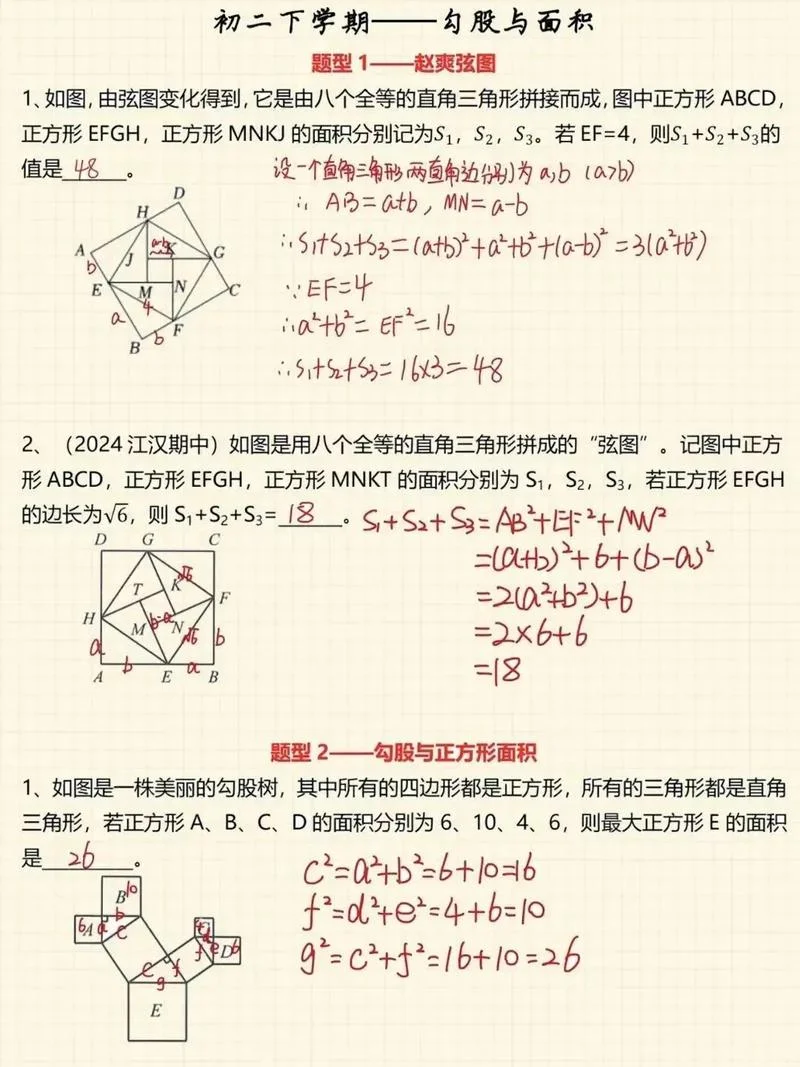 初二下学期——勾股与面积
题型1——赵爽弦图
1、如图，由弦图变化得到，它是由八个全等的直角三角形拼接而成，图中正方形 ABCD，
正方形 EFGH，正方形 MNKJ 的面积分别记为S₁，S₂，S₃。若 EF=4，则S₁+S₂+S₃的
值是 48 。
设一个直角三角形两直角边分别为a,b (a>b)
∴ AB=a+b, MN=a-b
∴S1+S2+S3=(a+b)²+a²+b²+(a-b)²=3(a²+b²)
∵EF=4
∴a²+b²=EF²=16
∴S1+S2+S3=16×3=48
D
H
a-b
K
A
b
J
G
E
M
N
C
4
a
F
B
b
2、（2024 江汉期中）如图是用八个全等的直角三角形拼成的“弦图”。记图中正方
形 ABCD，正方形 EFGH，正方形 MNKT 的面积分别为 S₁，S₂，S₃，若正方形 EFGH
的边长为√6，则 S₁+S₂+S₃= 18 。
S1+S2+S3=AB²+EF²+MN²
=(a+b)²+6+(b-a)²
=2(a²+b²)+6
=2×6+6
=18
D G C
T K √6
H F
M b-a N √6
a b
b a
A E B
题型2——勾股与正方形面积
1、如图是一株美丽的勾股树，其中所有的四边形都是正方形，所有的三角形都是直角
三角形，若正方形 A、B、C、D 的面积分别为 6、10、4、6，则最大正方形 E 的面积
是 26 。
c²=a²+b²=6+10=16
f²=d²+e²=4+6=10
g²=c²+f²=16+10=26
B 10
6 A a b
c
4 C
d
f e D 6
c f
g
E